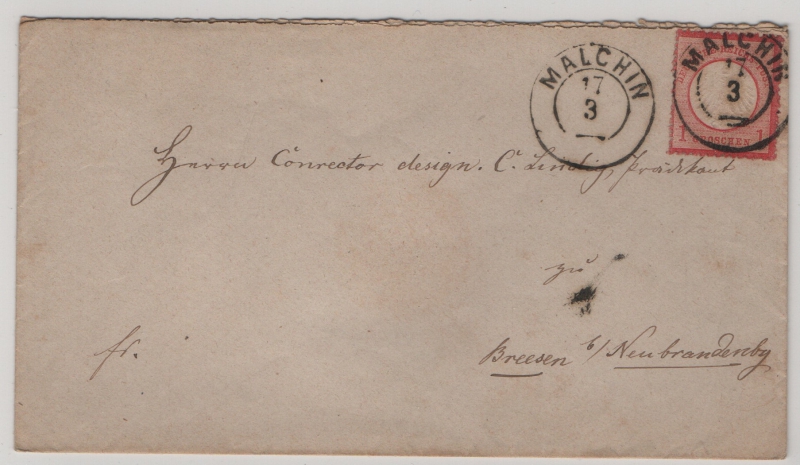 MALCHIN
17
3
MALCHIN
17
3
1 GROSCHEN 1
Herrn Conrector design. C. Lindig, Prädikant
zu
fr.
Breesen b/Neubrandenbg